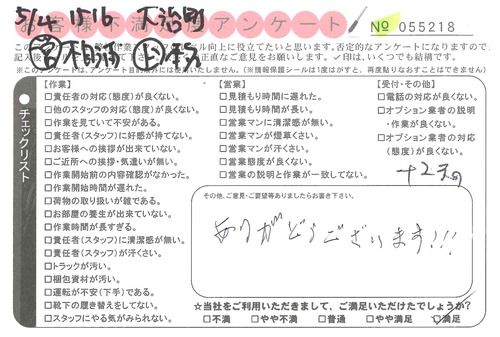 5/4 15:16 不治刚
お客様不満足度アンケート
№ 055218
このアンケートは
向上に役立てたいと思います。否定的なアンケートになりますので、
正直なご意見をお願いします。✓印は、いくつでも結構です。
※このアンケートは、アンケート目的以外には使用いたしません。(※情報保護シールは1度はがすと、再度貼りなおすことはできません)
チェックリスト
【作業】
□責任者の対応(態度)が良くない。
□他のスタッフの対応(態度)が良くない。
□作業を見ていて不安がある。
□責任者(スタッフ)に好感が持てない。
□お客様への挨拶が出来ていない。
□ご近所への挨拶・気遣いが無い。
□作業開始前の内容確認がなかった。
□作業開始時間が遅れた。
□荷物の取り扱いが雑である。
□お部屋の養生が出来ていない。
□作業時間が長すぎる。
□責任者(スタッフ)に清潔感が無い。
□責任者(スタッフ)が汗くさい。
□トラックが汚い。
□梱包資材が汚い。
□運転が不安(下手)である。
□靴下の履き替えをしてない。
□スタッフにやる気がみられない。
【営業】
□見積もり時間に遅れた。
□見積もり時間が長い。
□営業マンに清潔感が無い。
□営業マンが煙草くさい。
□営業マンが汗くさい。
□営業態度が良くない。
□営業の説明と作業が一致してない。
【受付・その他】
□電話の対応が良くない。
□オプション業者の説明
・作業が良くない。
□オプション業者の対応
(態度)が良くない。
その他、ご意見・ご要望等ありましたらお書き下さい。
ありがとうございます!!!
☆当社をご利用いただきまして、ご満足いただけたでしょうか?
□不満 □やや不満 □普通 □やや満足 ☑満足